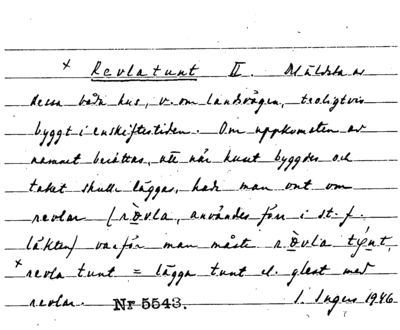 x Revlatunt II. Det äldsta av
dessa båda hus, v. om landsvägen, troligtvis
byggt i enskiftestiden. Om uppkomsten av
namnet berättas, att när huset byggdes och
taket skulle läggas, hade man ont om
revlar (rò̱vla, användes förr i st. f.
läkter) varför man måste rò̱vla ty̱nt,
x revla tunt = lägga tunt el. glest med
revlar. Nr 5543. I. Ingers 1946